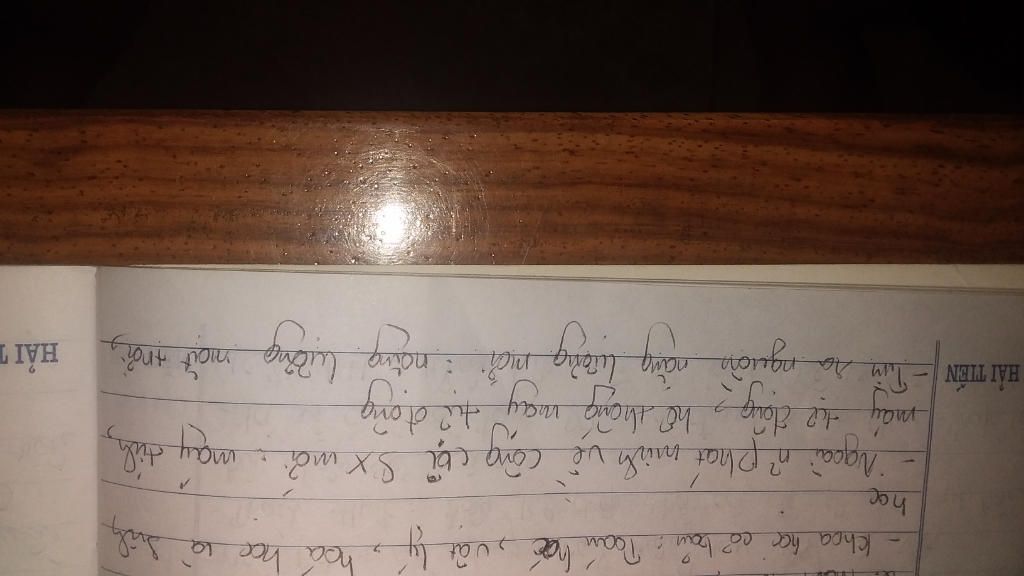 - khoa học cơ bản: Toán học, vật lý, hoá học và sinh
học
- Ngoài n~ phát minh về công cụ SX mới: máy tính
máy tự động, hệ thống máy tự động
- Tìm ra nguồn năng lượng mới: năng lượng mặt trời,
HẢI TIẾN
HẢI T